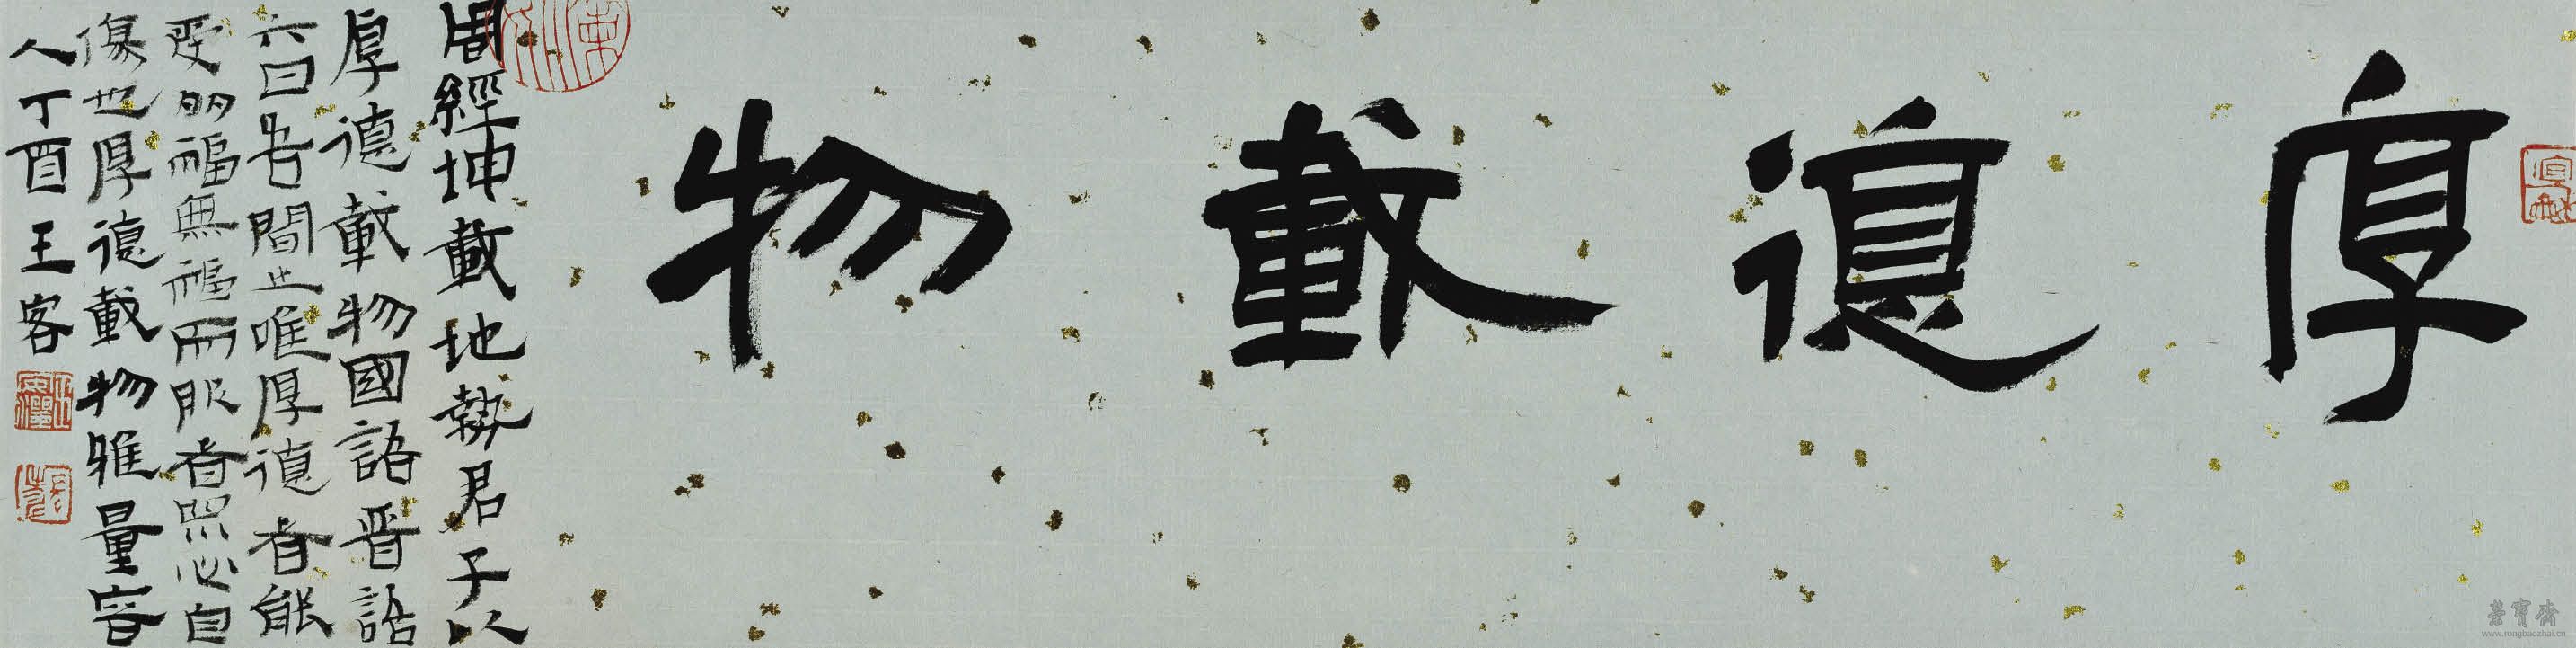 厚德載物
周經坤載地勢君子以
厚德載物國語晋語
六曰吾聞之唯厚德者能
受多福無福而服者眾必自
傷也厚德載物雅量容
人丁酉王客
榮寶齋
www.rongbaozhai.cn